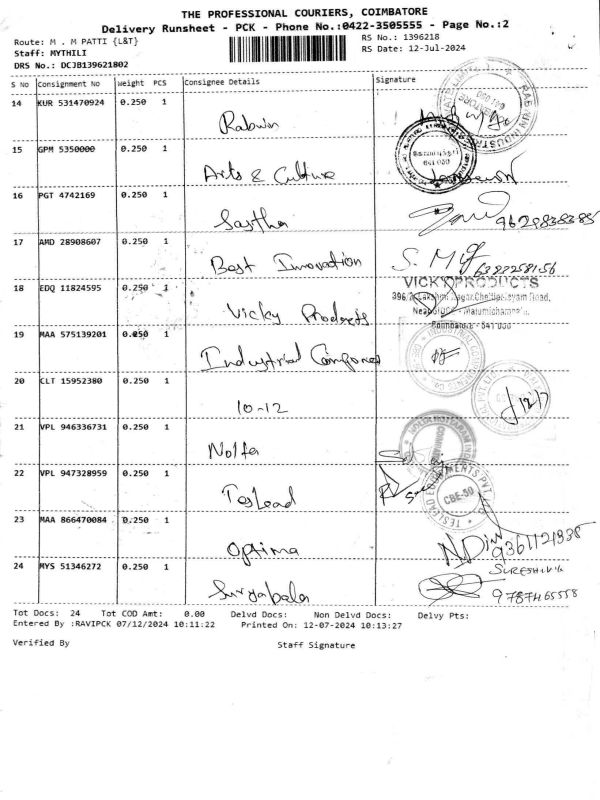 THE PROFESSIONAL COURIERS, COIMBATORE
Delivery Runsheet - PCK - Phone No.:0422-3505555 - Page No.:2
Route: M . M PATTI {L&T}
RS No.: 1396218
Staff: MYTHILI
RS Date: 12-Jul-2024
DRS No.: DCJB139621802
S No Consignment No Weight PCS Consignee Details Signature
14 KUR 531470924 0.250 1
Rabwin
15 GPM 5350000 0.250 1
Arts & Culture
16 PGT 4742169 0.250 1
Sastha
9629838385
17 AMD 28908607 0.250 1
Best Innovation
S. M
6382258156
18 EDQ 11824595 0.250 1
VICKY PRODUCTS
Vicky Products
19 MAA 575139201 0.250 1
Industrial Compones
20 CLT 15952380 0.250 1
10-12
21 VPL 946336731 0.250 1
Nolta
22 VPL 947328959 0.250 1
TesLead
CBE-50
23 MAA 866470084 0.250 1
Optima
24 MYS 51346272 0.250 1
Suryabala
9787465558
Tot Docs: 24 Tot COD Amt: 0.00 Delvd Docs: Non Delvd Docs: Delvy Pts:
Entered By :RAVIPCK 07/12/2024 10:11:22 Printed On: 12-07-2024 10:13:27
Verified By Staff Signature